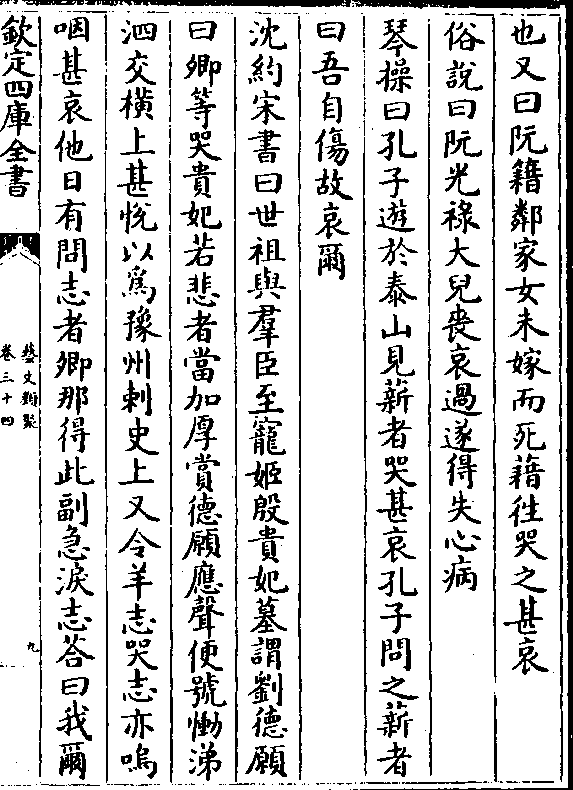 也又曰阮籍鄰家女未嫁而死藉往哭之甚哀
俗說曰阮光祿大兒喪哀過遂得失心病
琴操曰孔子遊於泰山見薪者哭甚哀孔子問之薪者
曰吾自傷故哀爾
沈約宋書曰世祖與羣臣至寵姬殷貴妃墓謂劉德願
曰卿等哭貴妃若悲者當加厚賞德願應聲便號慟涕
泗交橫上甚悅以為豫州剌史上又令羊志哭志亦嗚
咽甚哀他日有問志者卿那得此副急淚志荅曰我爾
欽定四庫全書
藝文類聚
卷三十四
九